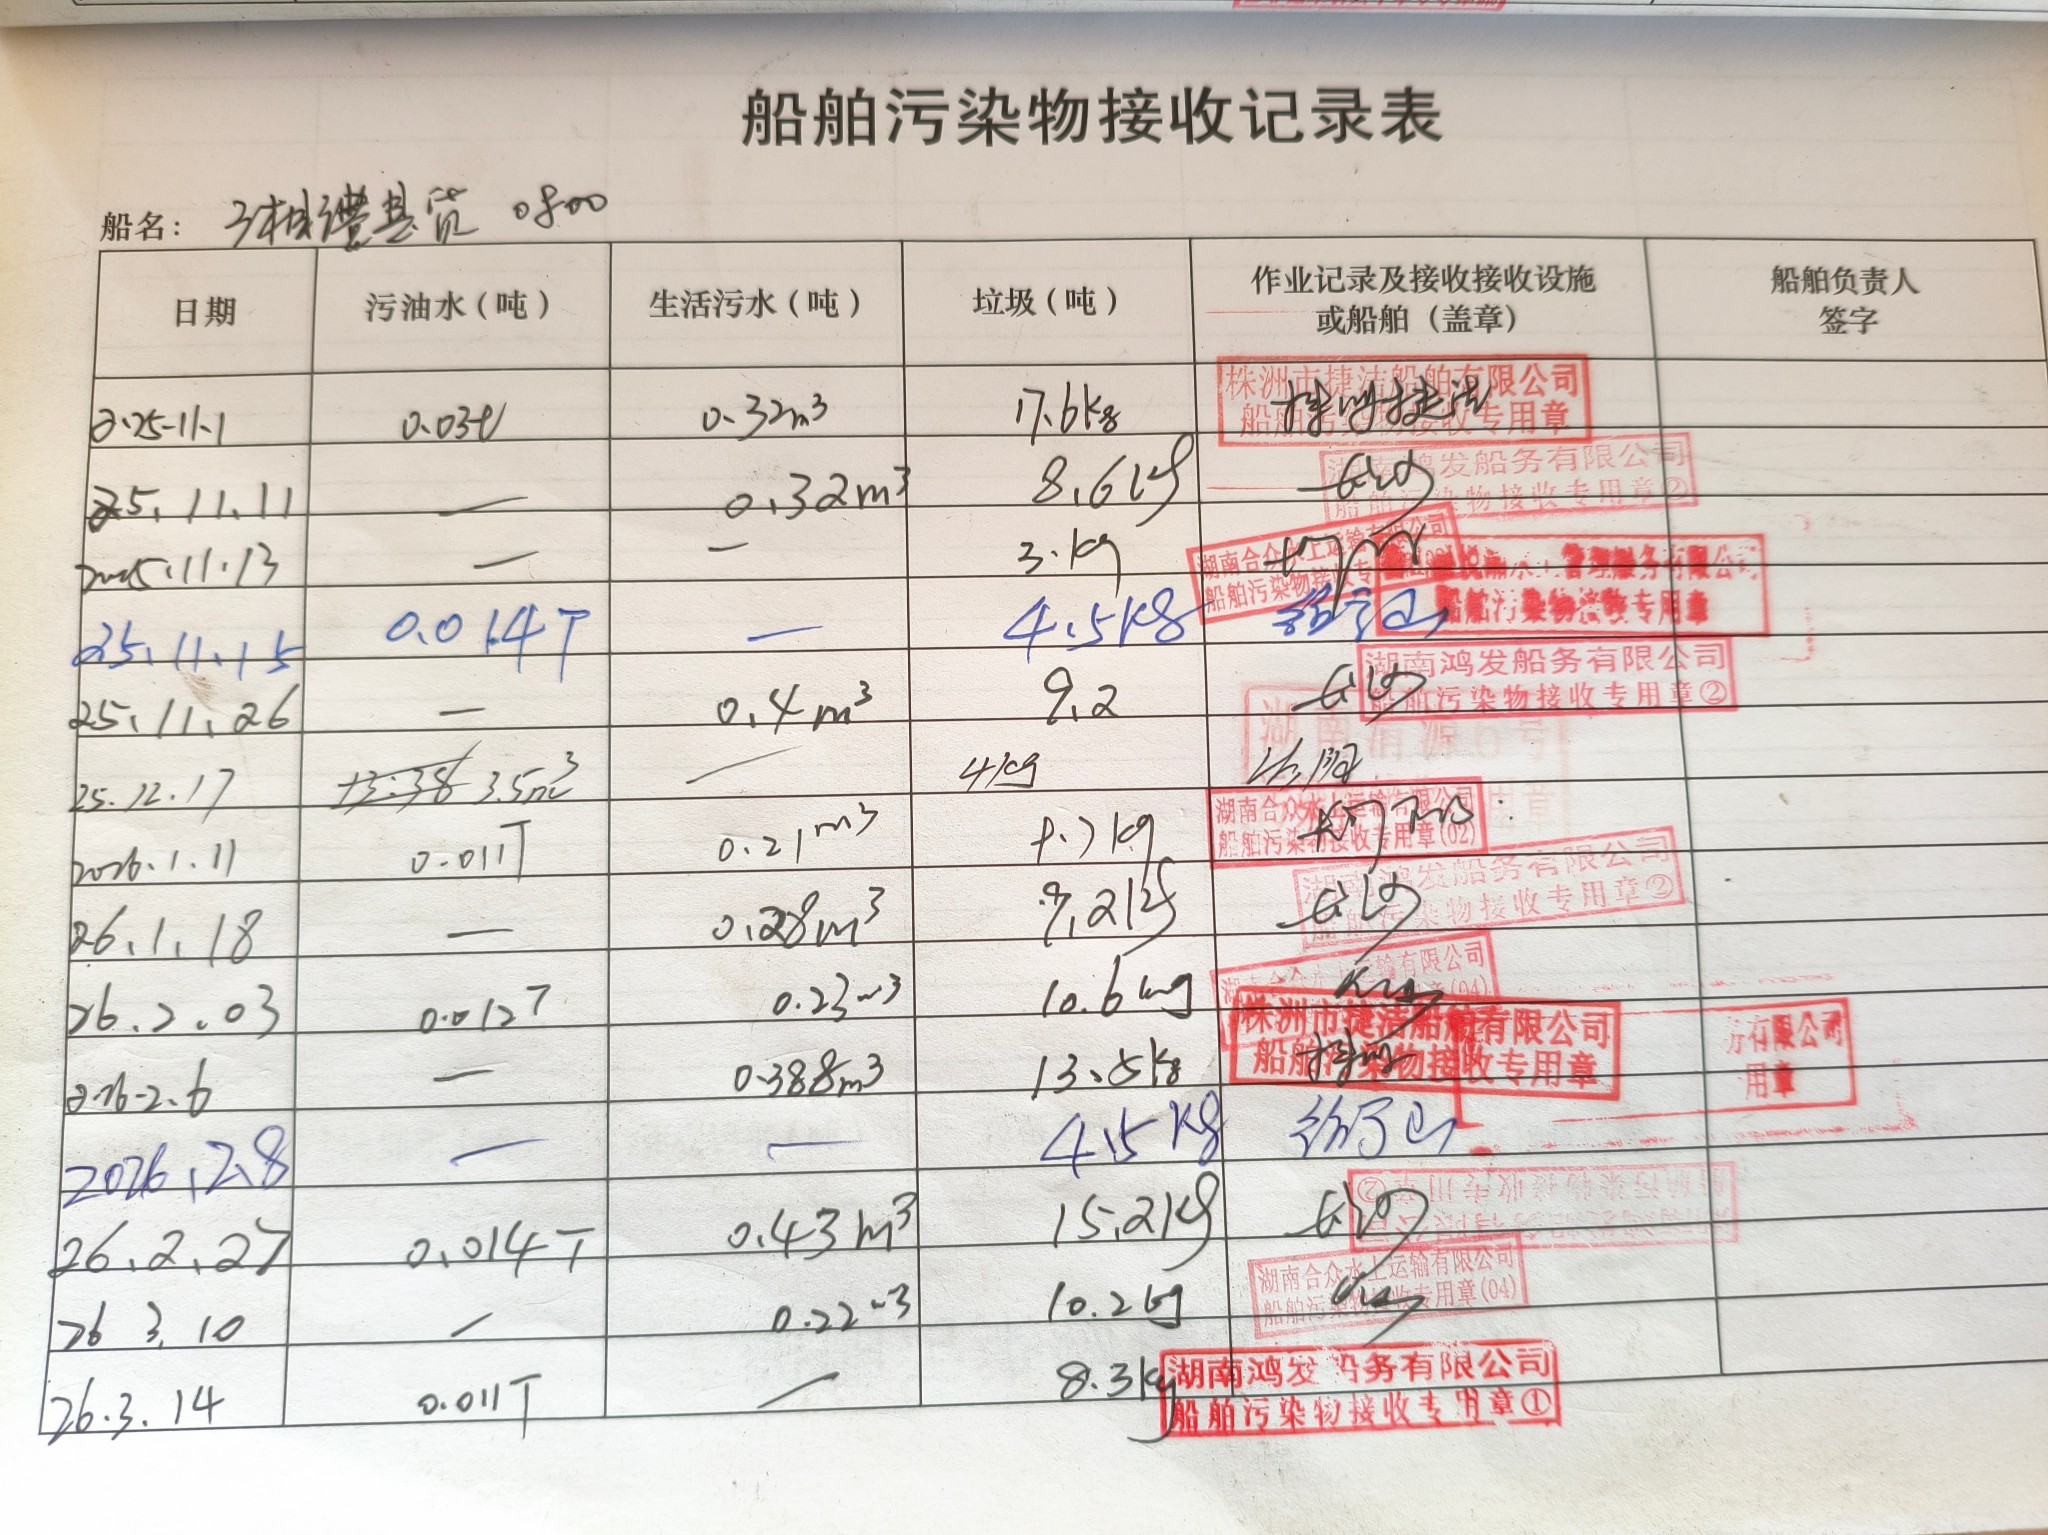 船舶污染物接收记录表
船名： 湘澧县货 0800
日期 污油水（吨） 生活污水（吨） 垃圾（吨） 作业记录及接收接收设施或船舶（盖章） 船舶负责人签字
2025-11.1 0.03t 0.32m³ 17.6kg 株洲捷洁 株洲市捷洁船舶有限公司 船舶污染物接收专用章
25.11.11 — 0.32m³ 8.6kg 长沙 湖南鸿发船务有限公司 船舶污染物接收专用章②
2025.11.13 — — 3.kg 湖南合众水上运输有限公司 船舶污染物接收专
25.11.15 0.014T — 4.5kg 水上管理服务有限公司 船舶污染物接收专用章
25.11.26 — 0.4m³ 9.2 长沙 湖南鸿发船务有限公司 船舶污染物接收专用章②
25.12.17 3.5m³ — 4kg 湖南清源
2026.1.11 0.011T 0.21m³ 湖南合众水上运输有限公司 船舶污染物接收专用章(02)
26.1.18 — 0.28m³ 9.2kg 长沙 湖南鸿发船务有限公司 船舶污染物接收专用章②
26.2.03 0.012T 0.23m³ 10.6kg 湖南合众水上运输有限公司 (04)
2026-2.6 — 0.388m³ 13.5kg 株洲 株洲市捷洁船舶有限公司 船舶污染物接收专用章 务有限公司 用章
2026.2.8 — — 4.5kg
26.2.27 0.014T 0.43m³ 15.2kg 长沙 船舶污染物接收专用章②
26 3.10 — 0.22m³ 10.2kg 湖南合众水上运输有限公司 船舶污染物接收专用章(04)
26.3.14 0.011T — 8.3kg 湖南鸿发船务有限公司 船舶污染物接收专用章①